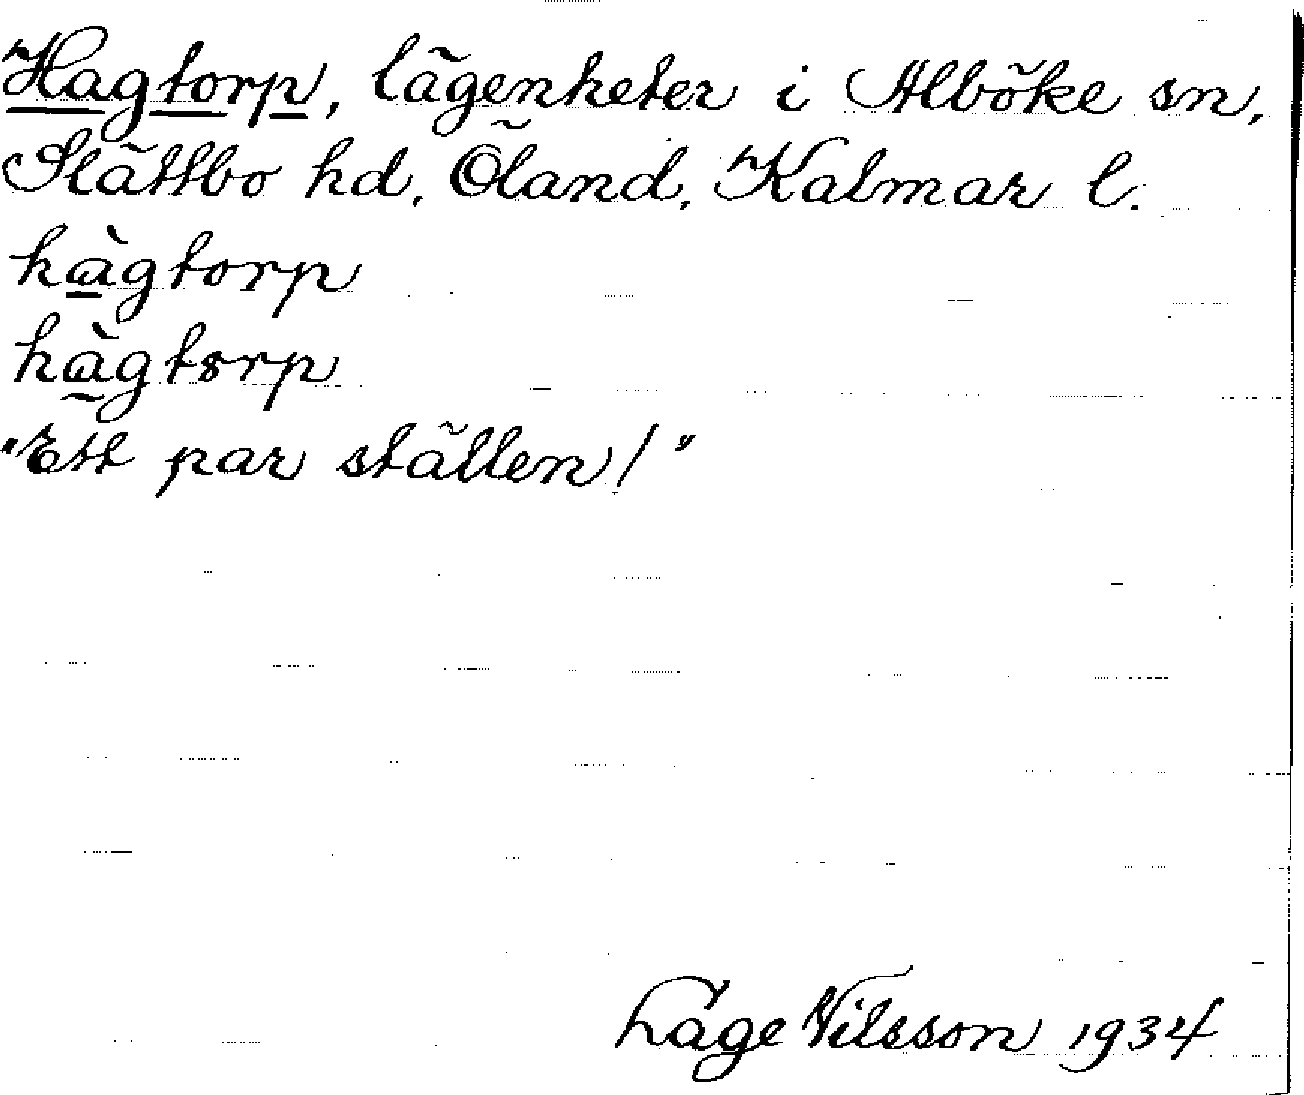 Hagtorp, lägenheter i Alböke sn,
Slättbo hd, Öland, Kalmar l.
hàgtorp
hàgtorp
"Ett par ställen!"
Låge Nilsson 1934